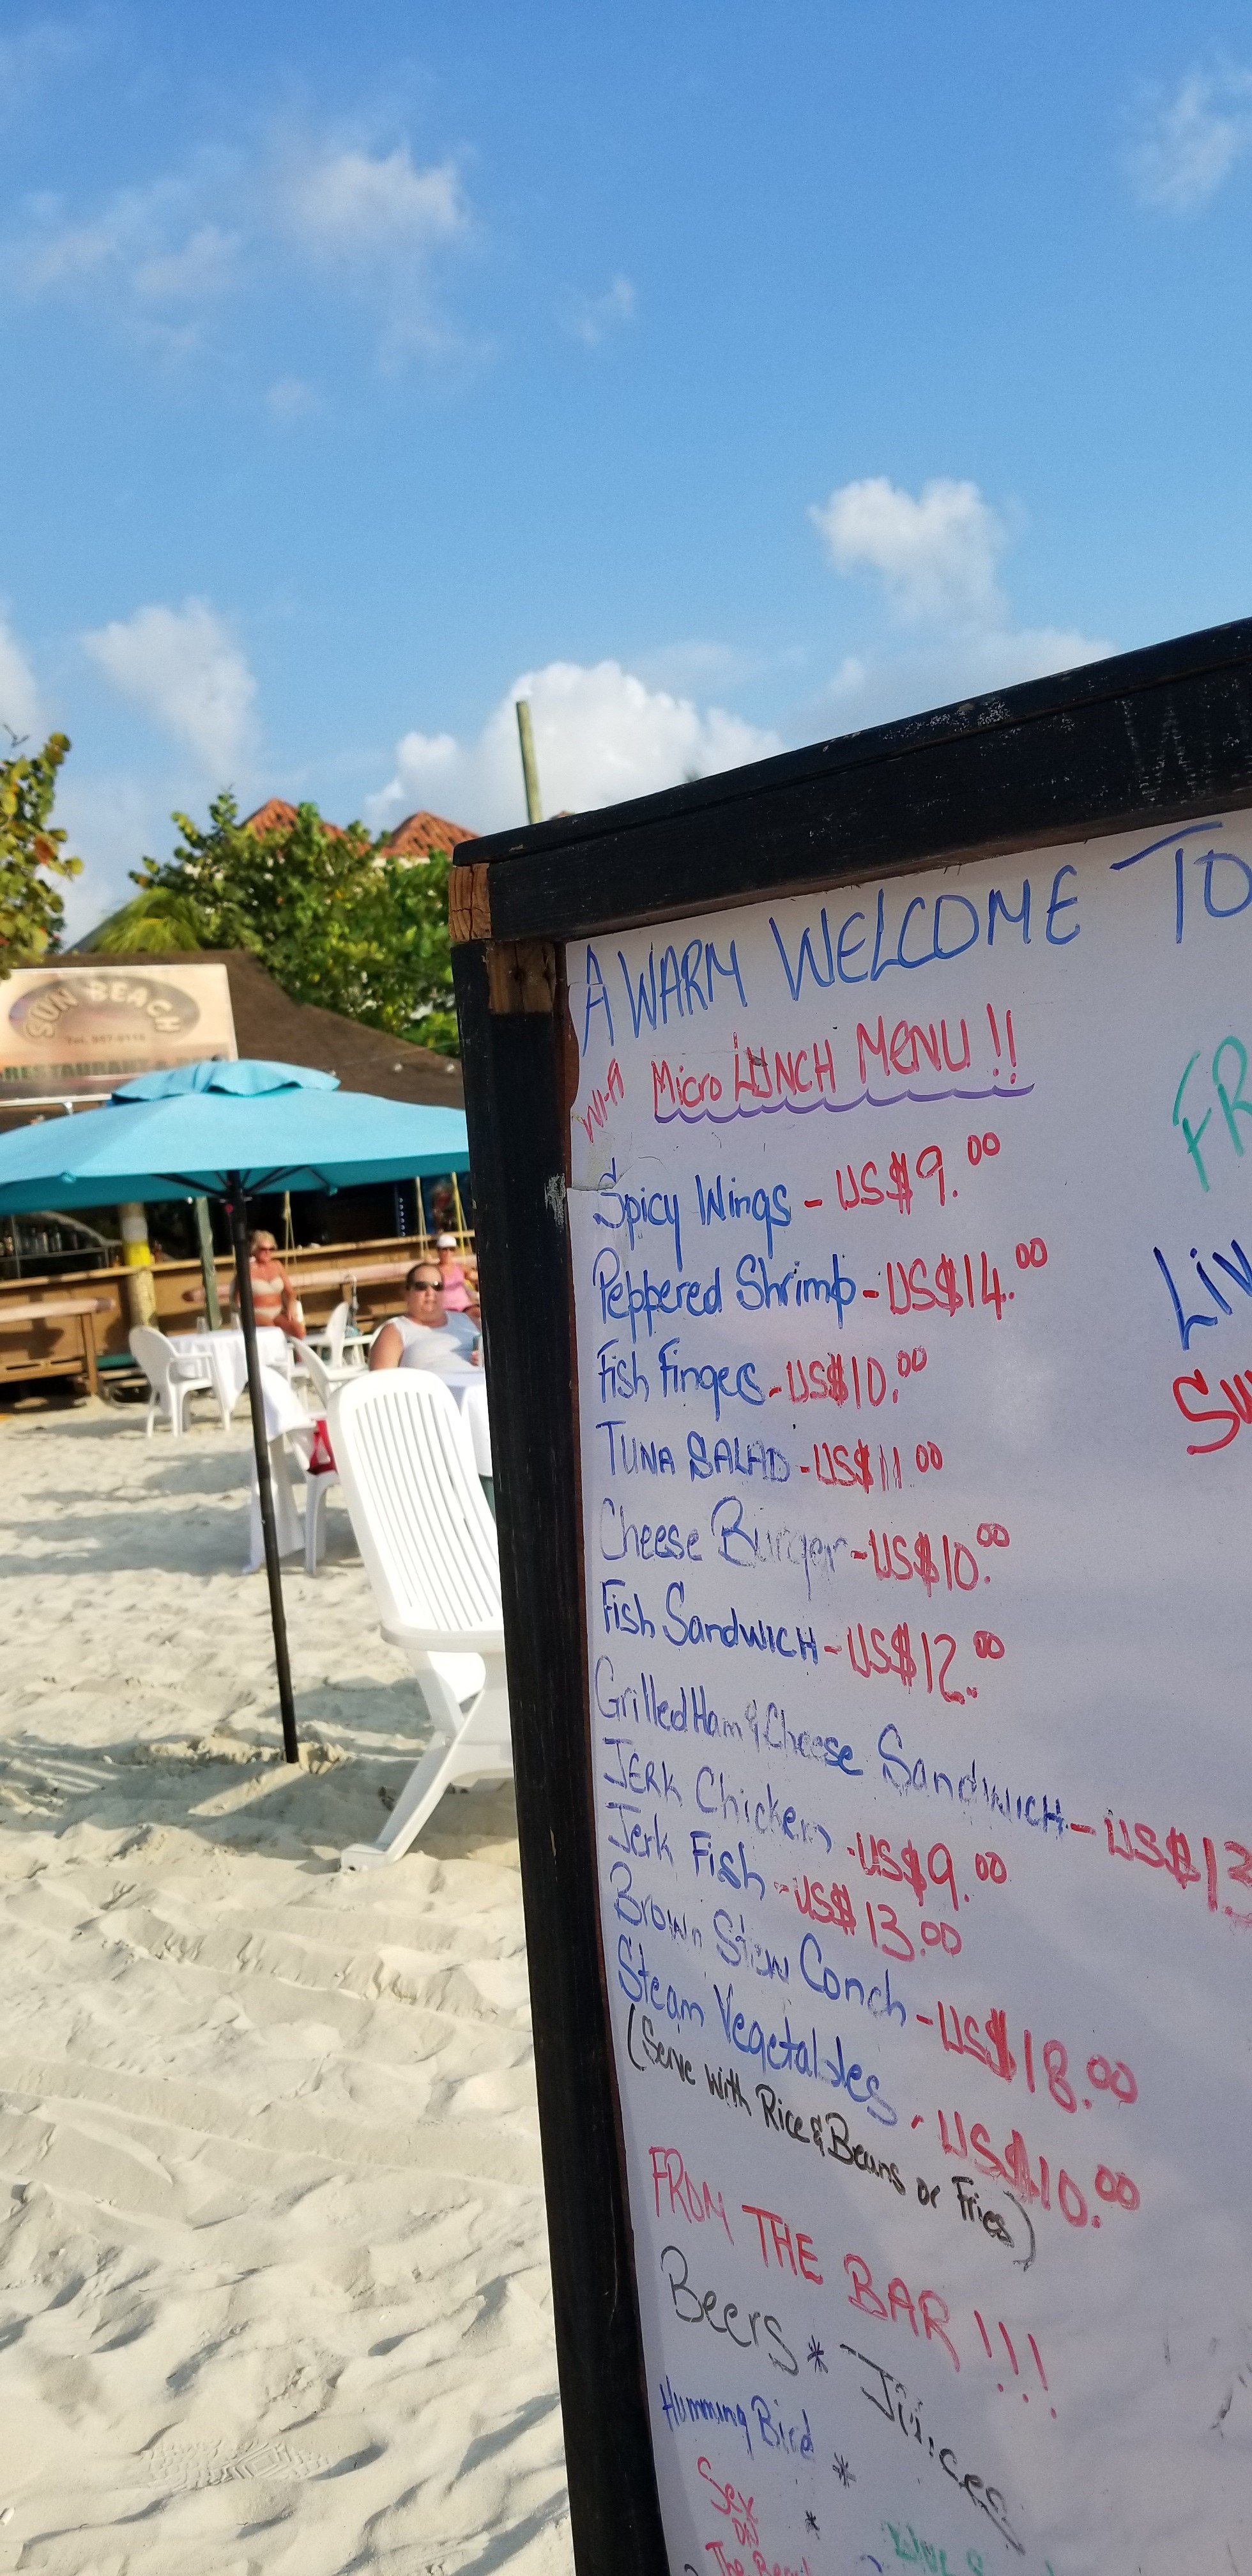 SUN BEACH
Tel. 957-9118
RESTAURANT &
A WARM WELCOME TO
Wi-Fi
Micro LUNCH MENU !!
Spicy Wings - US$9.00
Peppered Shrimp - US$14.00
Fish Fingers - US$10.00
TUNA SALAD - US$11.00
Cheese Burger - US$10.00
Fish SandwicH - US$12.00
Grilled Ham & Cheese SandwicH - US$13
JERK Chicken - US$9.00
Jerk Fish - US$13.00
Brown Stew Conch - US$18.00
Steam Vegetables - US$10.00
(Serve with Rice & Beans or Fries)
FROM THE BAR !!!
Beers * Juices
Humming Bird *
Sex
ON *
The
FR
LIV
SU